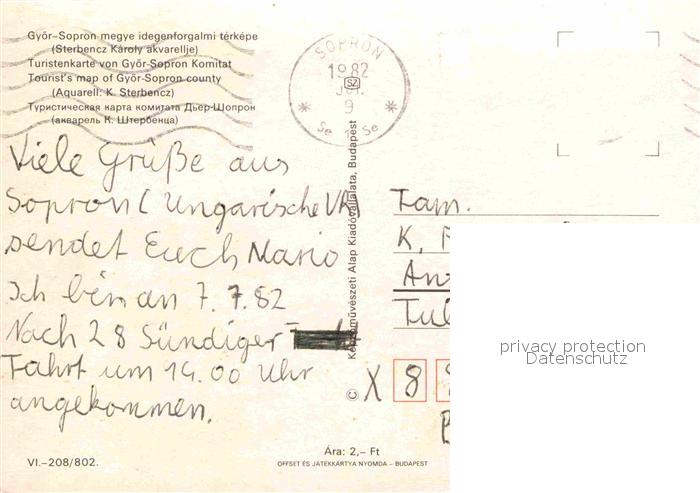 Győr-Sopron megye idegenforgalmi térképe
(Sterbencz Károly akvarellje)
Turistenkarte von Győr-Sopron Komitat
Tourist's map of Győr-Sopron county
(Aquarell: K. Sterbencz)
Туристическая карта комитата Дьер-Шопрон
(акварель К. Штербенца)
SOPRON
1982
SZ
9
Viele Grüße aus
Sopron (Ungarische VR)
sendet Euch Mario
Ich bin an 7.7.82
Nach 28 Sündiger
Fahrt um 14.00 Uhr
angekommen.
VI.-208/802.
Képzőművészeti Alap Kiadóvállalata, Budapest
©
Ára: 2,– Ft
OFFSET ÉS JÁTÉKKÁRTYA NYOMDA – BUDAPEST
Fam.
K.
X 8
privacy protection
Datenschutz